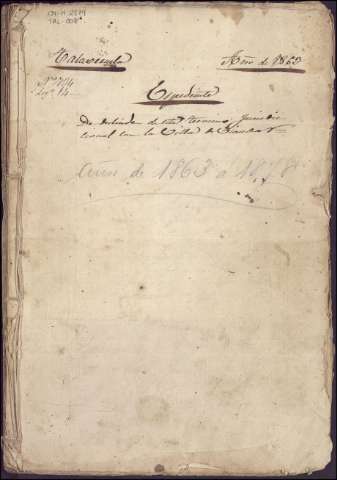 Talarrubias
Año de 1863
Nº 704
Leg. 14
Expediente
De deslinde de este termino jurisdic
cional con la Villa de
Años de 1863 a 1878